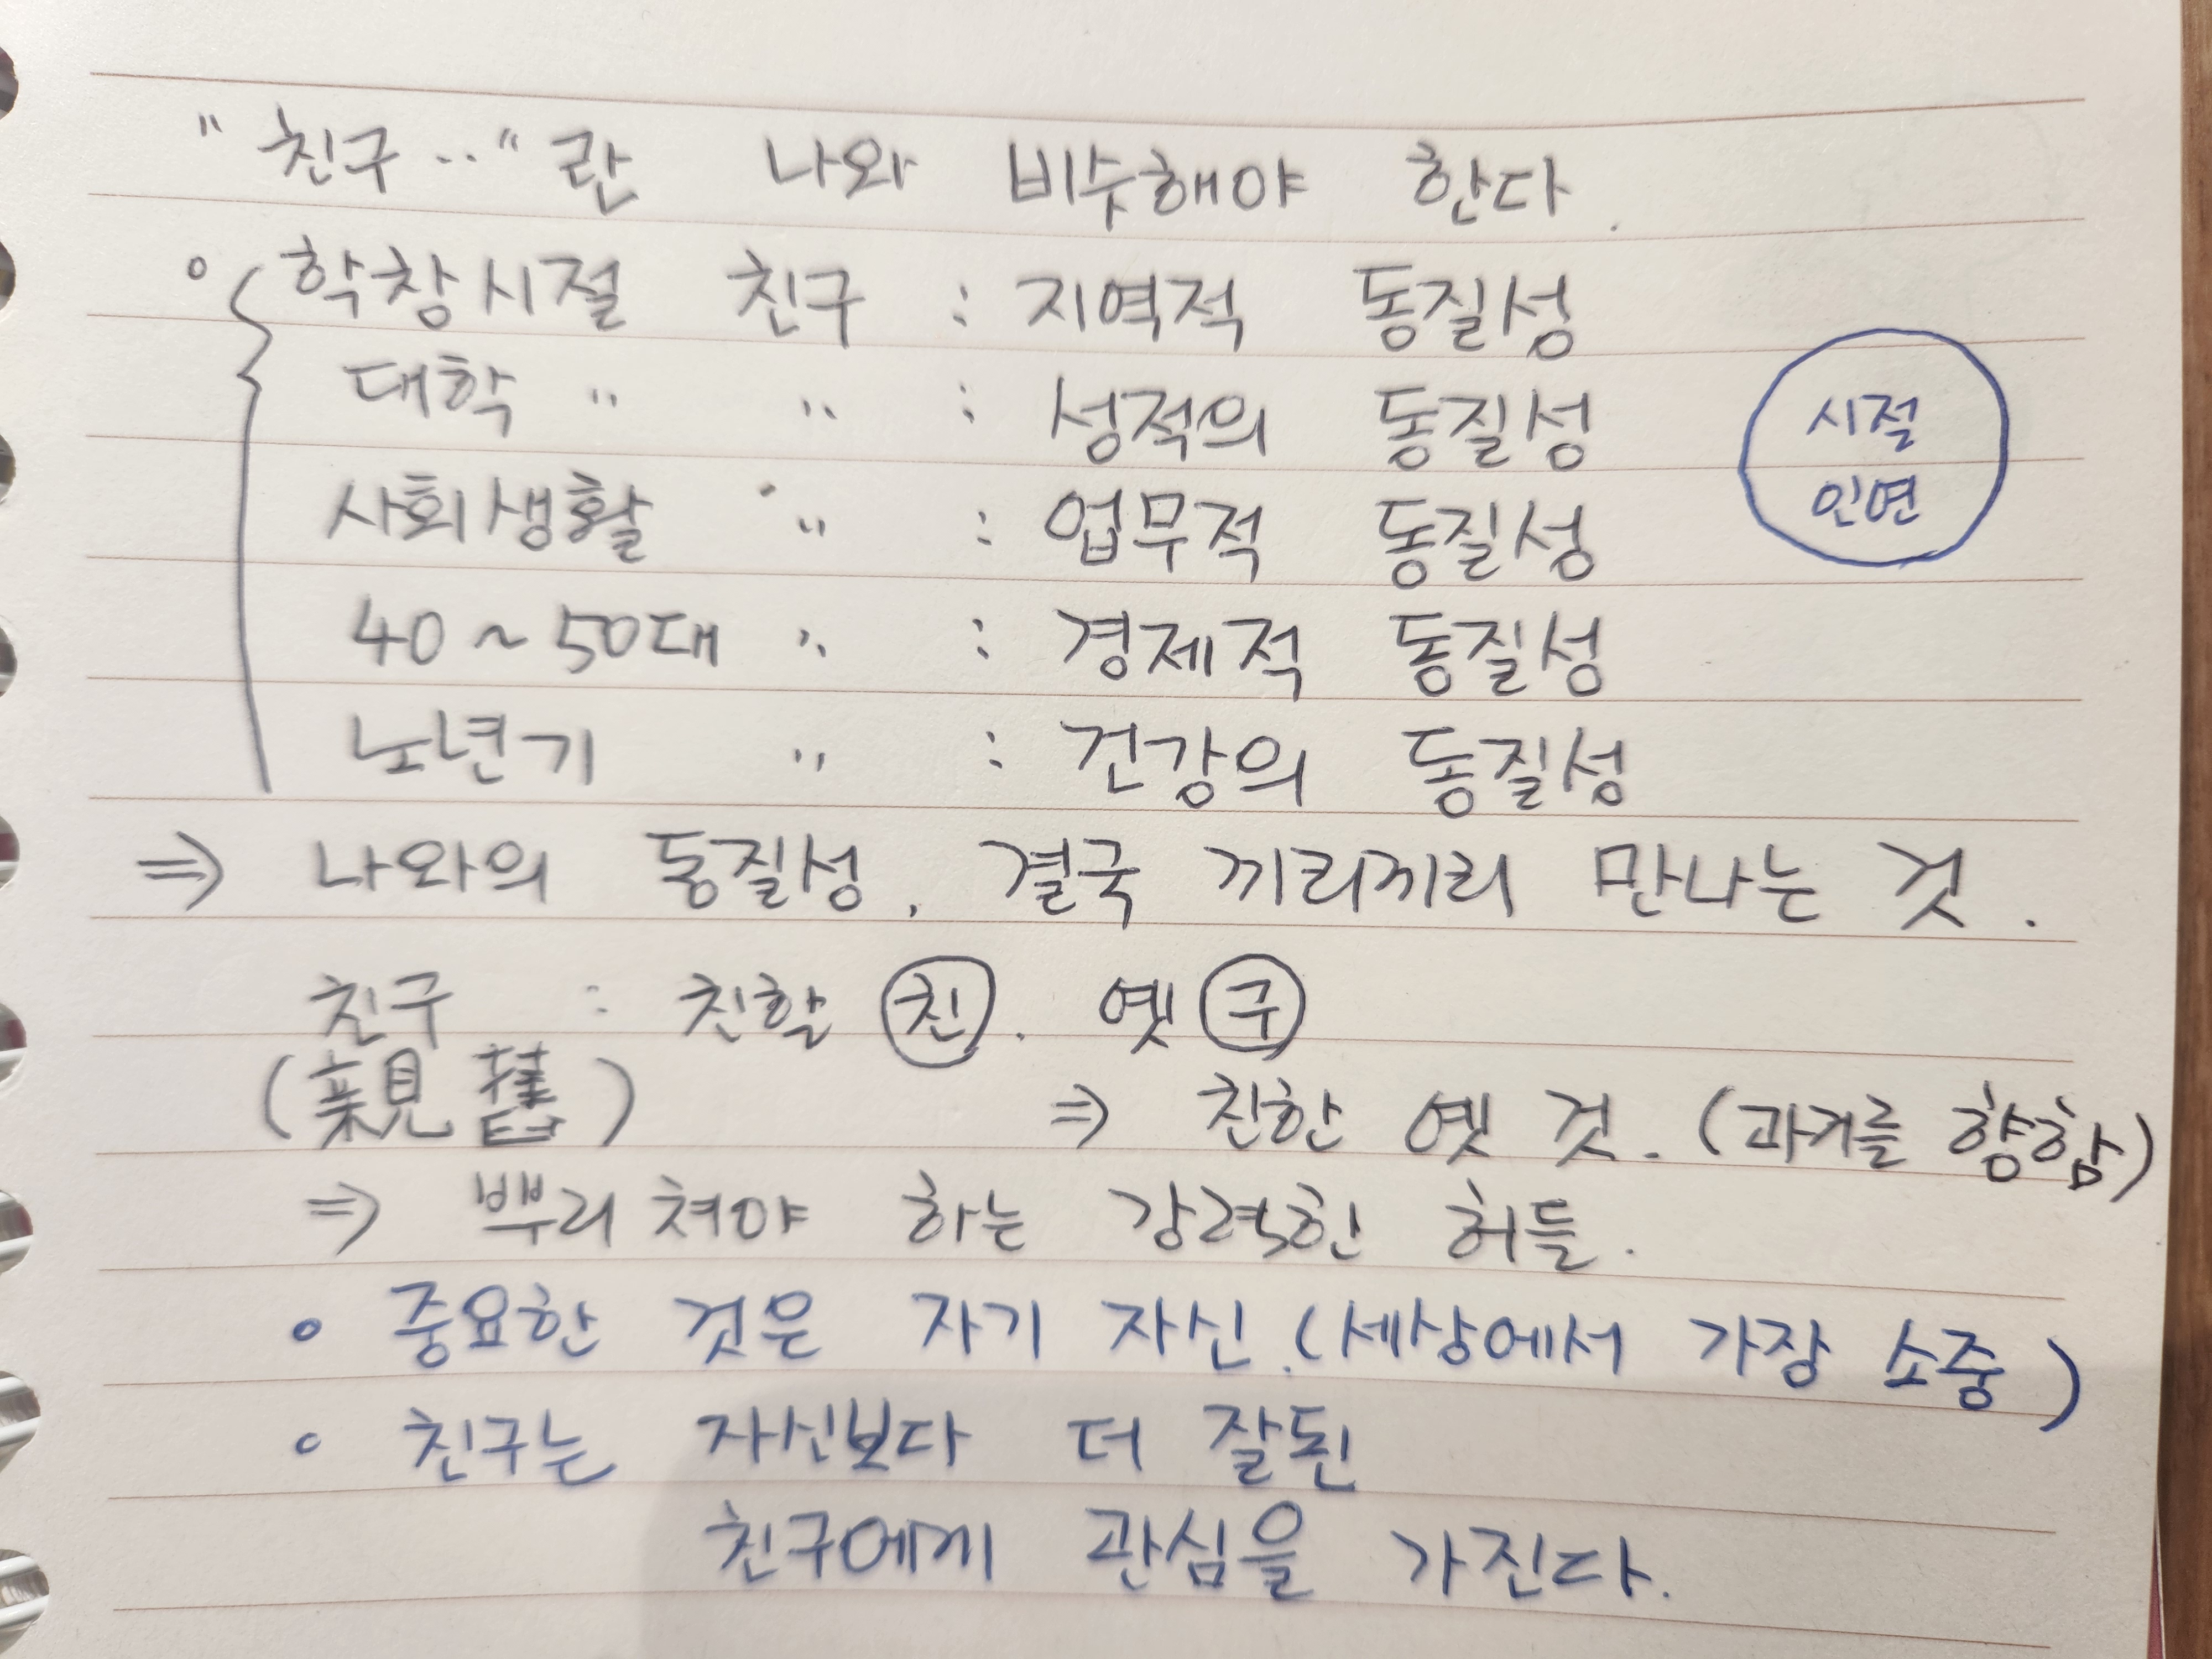 "친구.." 란 나와 비슷해야 한다.
° 학창시절 친구 : 지역적 동질성
대학 〃 〃 : 성적의 동질성
사회생활 〃 : 업무적 동질성
40 ~ 50대 〃 : 경제적 동질성
노년기 〃 : 건강의 동질성
시절
인연
⇒ 나와의 동질성. 결국 끼리끼리 만나는 것.
친구 : 친할 친. 옛 구
(親舊)
⇒ 친한 옛 것. (과거를 향함)
⇒ 뿌리쳐야 하는 강력한 허들.
° 중요한 것은 자기 자신. (세상에서 가장 소중)
° 친구는 자신보다 더 잘된
친구에게 관심을 가진다.